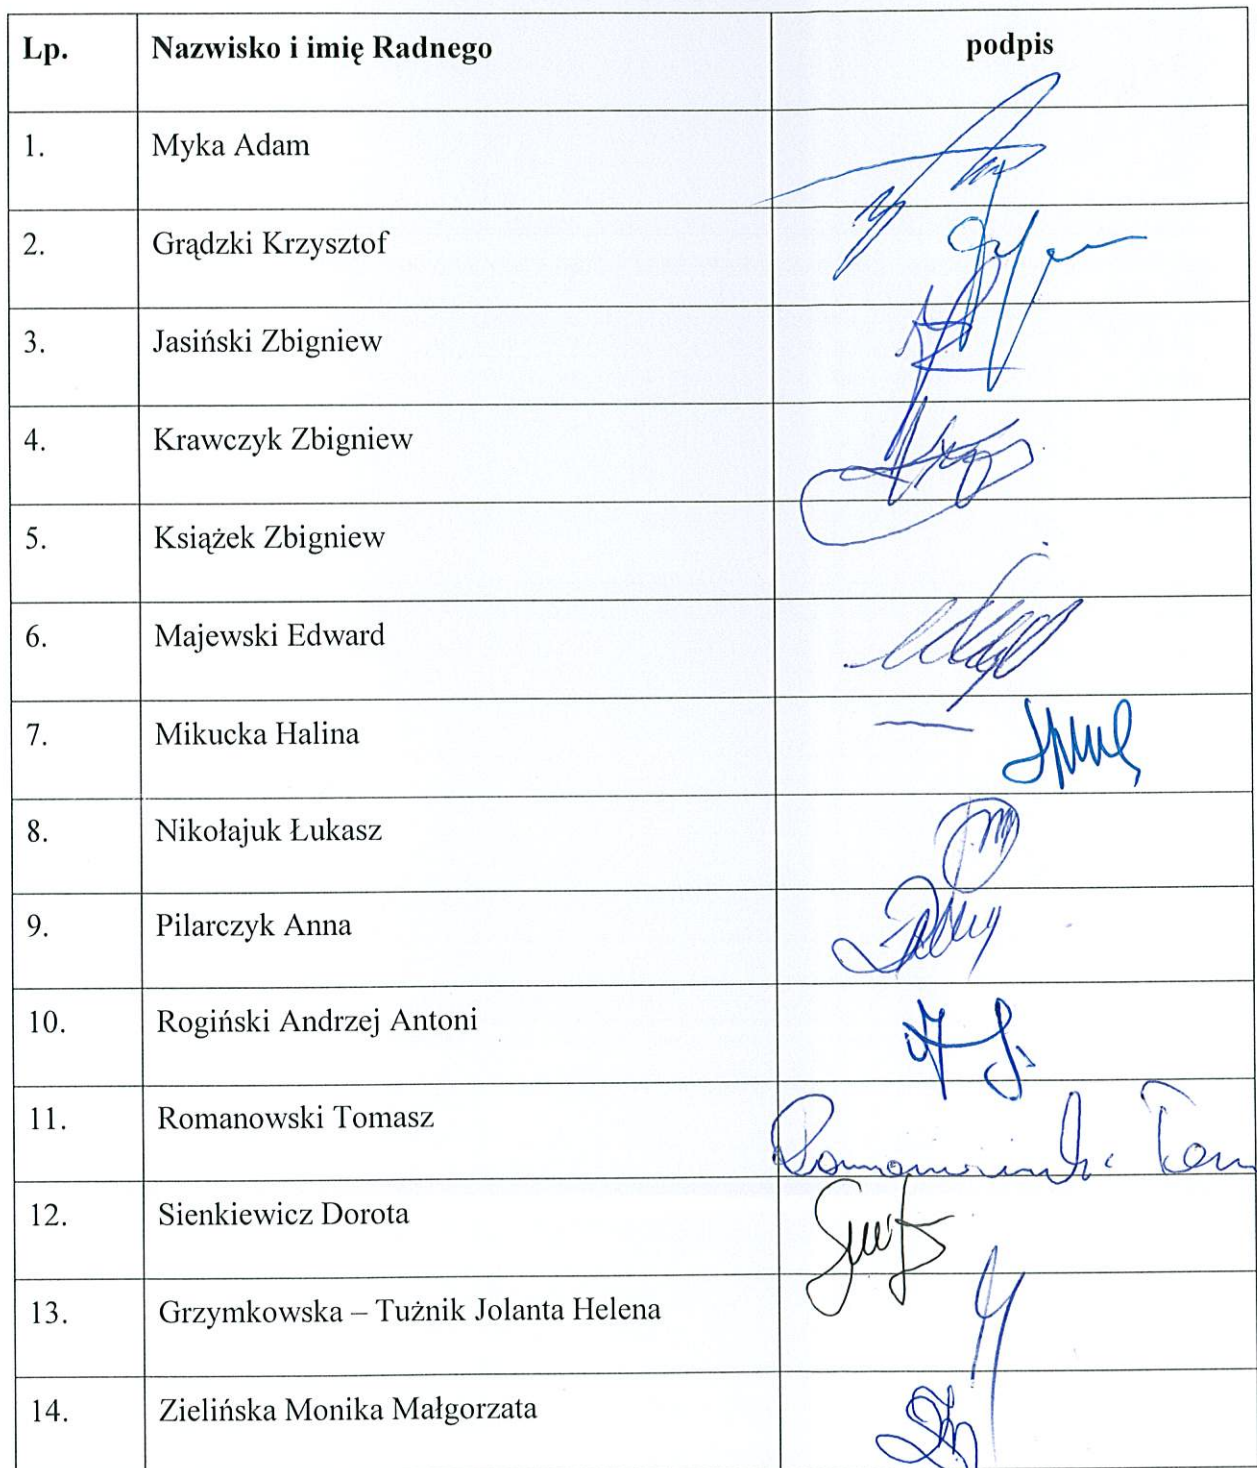 Lp. Nazwisko i imię Radnego podpis
1. Myka Adam
2. Grądzki Krzysztof
3. Jasiński Zbigniew
4. Krawczyk Zbigniew
5. Książek Zbigniew
6. Majewski Edward
7. Mikucka Halina
8. Nikołajuk Łukasz
9. Pilarczyk Anna
10. Rogiński Andrzej Antoni
11. Romanowski Tomasz
12. Sienkiewicz Dorota
13. Grzymkowska – Tużnik Jolanta Helena
14. Zielińska Monika Małgorzata